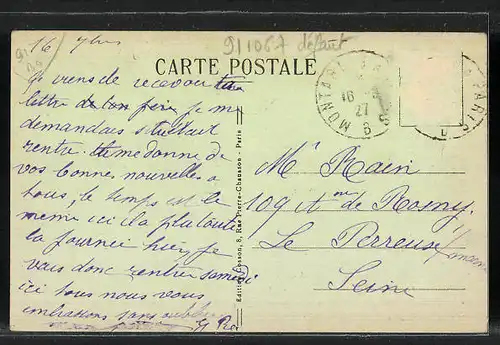 16
911067 défaut
CARTE POSTALE
MONTARGIS
16
27
PARIS
je viens de recevoir une
lettre de ton père je me
demandais s'il était
rentré il me donne de
vos bonnes nouvelles a
tous, le temps est le
même ici il a plu toute
la journée hier, je
vais donc rentrer samedi
ici tous nous vous
embrassons sans oublier
Edition Rosson, 8, Rue Pierre-Chausson - Paris
Mr Rain
109 Ave de Rosny
Le Perreux
Seine